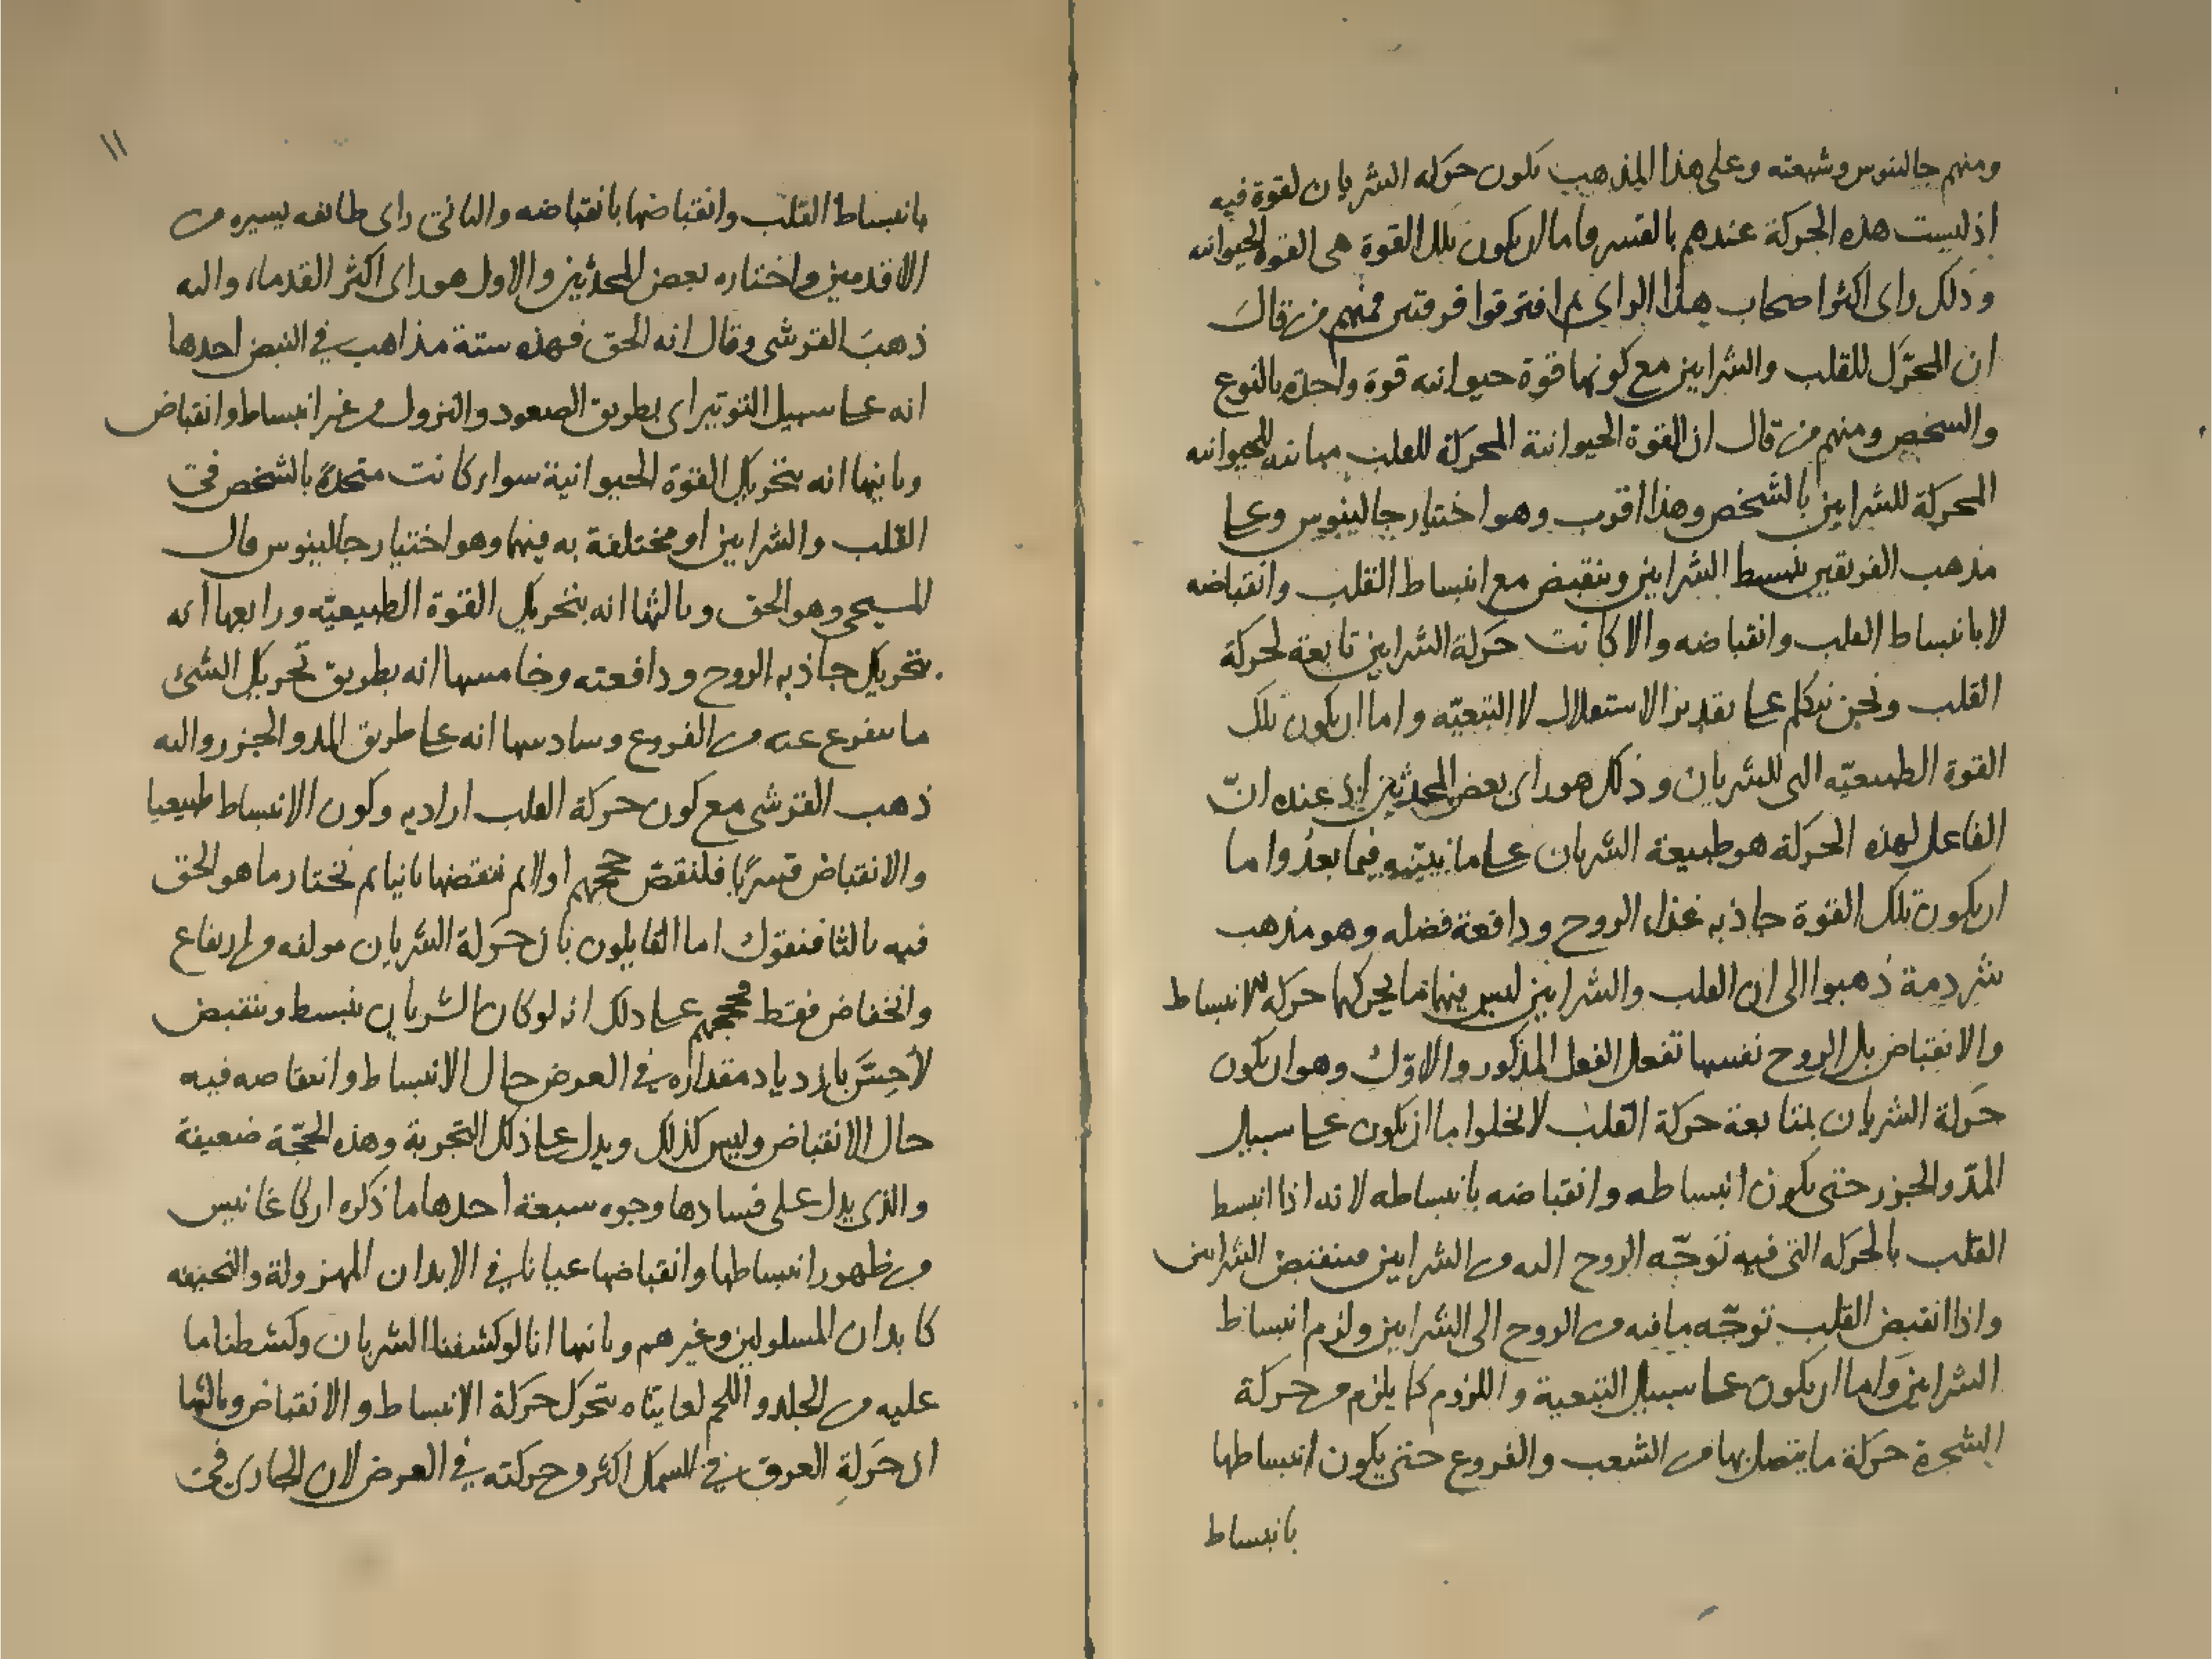 ومنهم جالينوس وشيعته وعلى هذا المذهب تكون حركة الشريان لقوة فيه
اذ ليست هذه الحركة عندهم بالقسر فاما ان يكون تلك القوة هى القوة الحيوانيه
وذلك راى اكثر اصحاب هذا الراى ثم افترقوا فرقتين فمنهم من قال
ان المحرك للقلب والشرايين مع كونها قوة حيوانيه قوة واحدة بالنوع
والشخص ومنهم من قال ان القوة الحيوانية المحركة للقلب مباينه للحيوانيه
المحركة للشرايين بالشخص وهذا اقرب وهو اختيار جالينوس وعلى
مذهب الفريقين تنبسط الشرايين وينقبض مع انبساط القلب وانقباضه
لا بانبساط القلب وانقباضه والا كانت حركة الشرايين تابعة لحركة
القلب ونحن نتكلم على تقدير الاستقلال لا التبعيّه واما ان يكون تلك
القوة الطبيعيّه التى للشريان وذلك هو راى بعض المحدثين اذ عنده انّ
الفاعل لهذه الحركة هو طبيعة الشريان على ما نبيّنه فيما بعدُ واما
ان يكون تلك القوة جاذبه غذاء الروح ودافعة فضله وهو مذهب
شردمة ذهبوا الى ان القلب والشرايين ليس فيهما ما يحركها حركة الانبساط
والانقباض بل الروح نفسها تفعل الفعل المذكور والاوّل وهو ان يكون
حركة الشريان بمتابعة حركة القلب لا يخلوا اما ان يكون على سبيل
المدّ والجزر حتى يكون انبساطه وانقباضه بانبساطه لانه اذا انبسط
القلب بالحركه التى فيه توجّه الروح اليه من الشرايين فينقبض الشرايين
واذا انقبض القلب توجّه ما فيه من الروح الى الشرايين ولزم انبساط
الشرايين واما ان يكون على سبيل التبعية واللزوم كما يلزم من حركة
الشجرة حركة ما يتصل بها من الشعب والفروع حتى يكون انبساطها
بانبساط
١١
بانبساط القلب وانقباضها بانقباضه والثانى راى طائفه يسيره من
الاقدمين واختاره بعض المحدثين والاول هو راى اكثر القدماء واليه
ذهب القرشى وقال انه الحق فهذه ستة مذاهب فى النبض احدها
انه على سبيل التوتير اى بطريق الصعود والنزول من غير انبساط وانقباض
وثانيها انه بتحريك القوة الحيوانية سواء كانت متحدة بالشخص فى
القلب والشرايين او مختلفة به فيهما وهو اختيار جالينوس قال
المسيحى وهو الحق وثالثها انه بتحريك القوة الطبيعيّه ورابعها انه
بتحريك جاذبه الروح ودافعته وخامسها انه بطريق تحريك الشئ
ما يتفرع عنه من الفروع وسادسها انه على طريق المد والجزر واليه
ذهب القرشى مع كون حركة القلب اراديه وكون الانبساط طبيعيا
والانقباض قسريًا فلنقصّ حججهم اولا ثم ننقضها ثانيا ثم نختار ما هو الحق
فيه ثالثا فنقول اما القايلون بان حركة الشريان مولفه من ارتفاع
وانخفاض فقط فحجتهم على ذلك انه لو كان الشريان ينبسط وينقبض
لأحِسَّ بازدياد مقداره فى العرض حال الانبساط وانتقاصه فيه
حال الانقباض وليس كذلك ويدل على ذلك التجربة وهذه الحجّة ضعيفة
والذى يدل على فسادها وجوه سبعة احدها ما ذكره اركاغانيس
من ظهور انبساطها وانقباضها عيانا فى الابدان المهزولة والنحيفه
كابدان المسلولين وغيرهم وثانيها انا لو كشفنا الشريان وكشطنا ما
عليه من الجلد واللحم لعايناه يتحرك حركة الانبساط والانقباض وثالثها
ان حركة العرق فى السمك اكثر من حركته فى العرض لان الحار فى